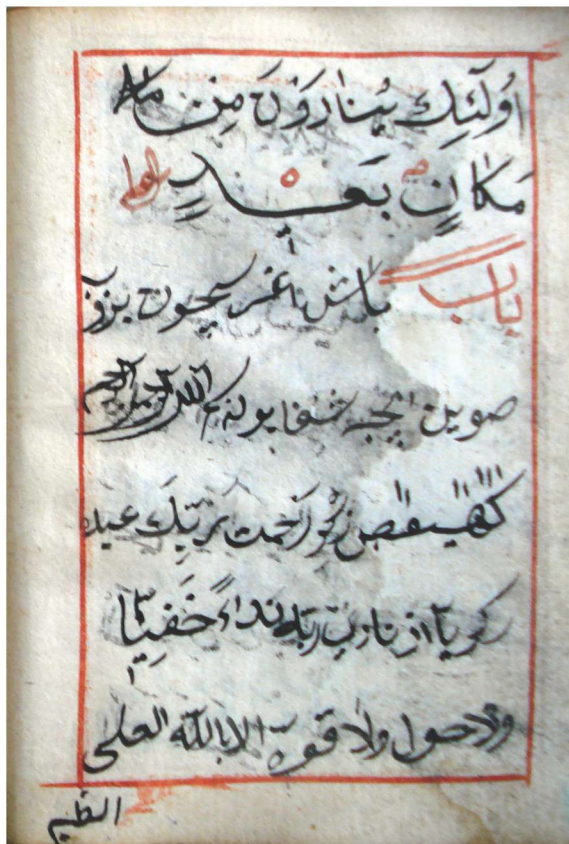 اُولَئِكَ يُنَادَوْنَ مِنْ
مَكَانٍ بَعِيدٍ
باب باش اغر سيچون
صوين ايچه شفا بوله بسم الله الرحمن الرحيم
كهيعص ذكر رحمت رَبِّكَ عبده
زكريّا اذ نادى ربّه نداءً خَفِيّاً
ولا حول ولا قوة الا بالله العلى
العظيم